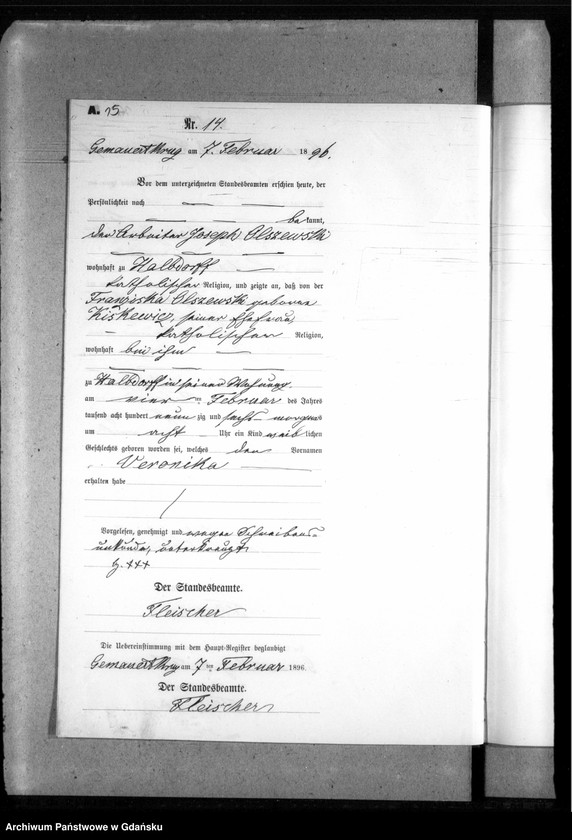 A. 15
Nr. 14.
Gemauert Krug am 7. Februar 1896.
Vor dem unterzeichneten Standesbeamten erschien heute, der
Persönlichkeit nach
bekannt,
der Arbeiter Joseph Olszewski
wohnhaft zu Halbdorff
katholischer Religion, und zeigte an, daß von der
Franziska Olszewski geborene
Kiskewicz, seiner Ehefrau,
katholischer Religion,
wohnhaft bei ihm
zu Halbdorff in seiner Wohnung
am vier ten Februar des Jahres
tausend acht hundert neun zig und sechs morgens
um acht Uhr ein Kind weiblichen
Geschlechts geboren worden sei, welches den Vornamen
Veronika
erhalten habe
Vorgelesen, genehmigt und wegen Schreibens-
unkunde, unterkreuzt
H. +++
Der Standesbeamte.
Fleischer
Die Uebereinstimmung mit dem Haupt-Register beglaubigt
Gemauert Krug am 7 ten Februar 1896.
Der Standesbeamte.
Fleischer
Archiwum Państwowe w Gdańsku